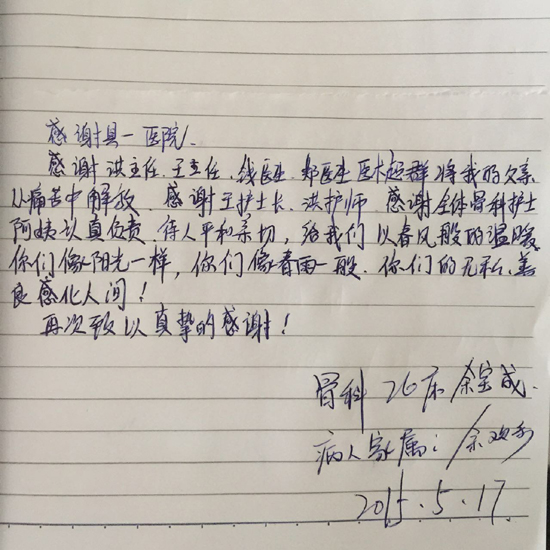 感谢县一医院.
感谢洪主任、王主任、钱医生、郑医生医术超群将我的父亲
从痛苦中解放、感谢王护士长、洪护师、感谢全体骨科护士
阿姨认真负责、待人平和亲切，给我们以春风般的温暖。
你们像阳光一样，你们像春雨一般、你们的无私、善
良感化人间！
再次致以真挚的感谢！
骨科 26床 余宝成.
病人家属：余
2015.5.17